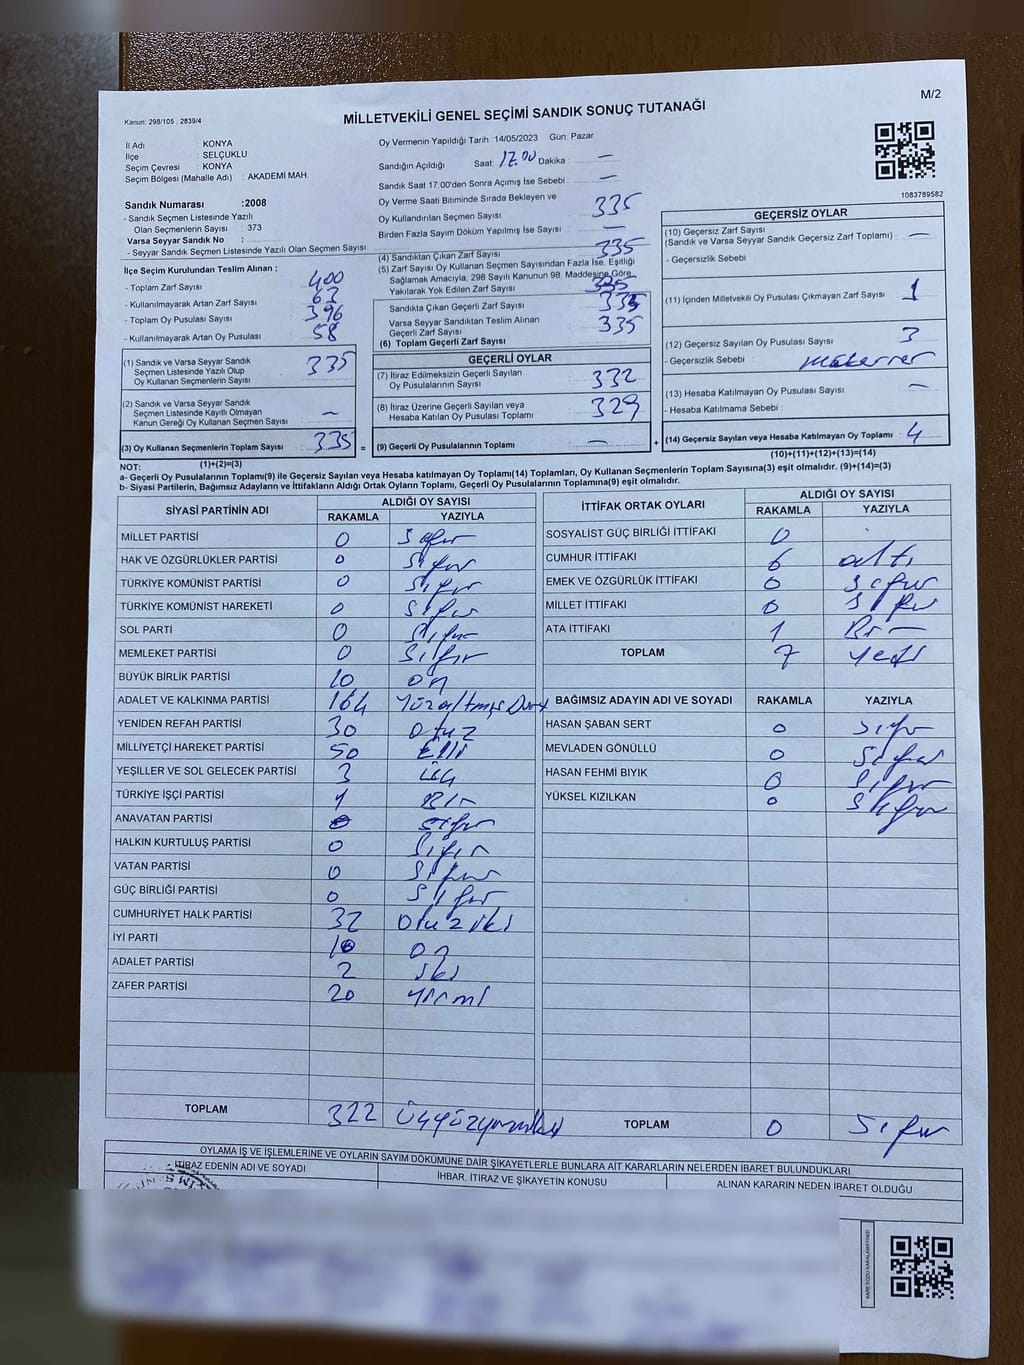 M/2
Kanun: 298/105 , 2839/4
MİLLETVEKİLİ GENEL SEÇİMİ SANDIK SONUÇ TUTANAĞI
İl Adı : KONYA
İlçe : SELÇUKLU
Seçim Çevresi : KONYA
Seçim Bölgesi (Mahalle Adı) : AKADEMİ MAH.
Sandık Numarası :2008
- Sandık Seçmen Listesinde Yazılı
Olan Seçmenlerin Sayısı : 373
Varsa Seyyar Sandık No :
- Seyyar Sandık Seçmen Listesinde Yazılı Olan Seçmen Sayısı:
İlçe Seçim Kurulundan Teslim Alınan ;
- Toplam Zarf Sayısı : 400
- Kullanılmayarak Artan Zarf Sayısı : 63
- Toplam Oy Pusulası Sayısı : 396
- Kullanılmayarak Artan Oy Pusulası : 58
(1) Sandık ve Varsa Seyyar Sandık
Seçmen Listesinde Yazılı Olup
Oy Kullanan Seçmenlerin Sayısı : 335
(2) Sandık ve Varsa Seyyar Sandık
Seçmen Listesinde Kayıtlı Olmayan
Kanun Gereği Oy Kullanan Seçmen Sayısı : —
(3) Oy Kullanan Seçmenlerin Toplam Sayısı : 335 =
(1)+(2)=(3)
Oy Vermenin Yapıldığı Tarih : 14/05/2023 Gün: Pazar
Sandığın Açıldığı Saat: 17.00 Dakika : —
Sandık Saat 17.00'den Sonra Açımış İse Sebebi : —
Oy Verme Saati Bitiminde Sırada Bekleyen ve
Oy Kullandırılan Seçmen Sayısı : 335
Birden Fazla Sayım Döküm Yapılmış İse Sayısı : —
(4) Sandıktan Çıkan Zarf Sayısı : 335
(5) Zarf Sayısı Oy Kullanan Seçmen Sayısından Fazla İse, Eşitliği
Sağlamak Amacıyla, 298 Sayılı Kanunun 98. Maddesine Göre
Yakılarak Yok Edilen Zarf Sayısı : 335
Sandıkta Çıkan Geçerli Zarf Sayısı : 335
Varsa Seyyar Sandıktan Teslim Alınan
Geçerli Zarf Sayısı : 335
(6) Toplam Geçerli Zarf Sayısı :
GEÇERLİ OYLAR
(7) İtiraz Edilmeksizin Geçerli Sayılan
Oy Pusulalarının Sayısı : 332
(8) İtiraz Üzerine Geçerli Sayılan veya
Hesaba Katılan Oy Pusulası Toplamı : 329
(9) Geçerli Oy Pusulalarının Toplamı : — +
1083789582
GEÇERSİZ OYLAR
(10) Geçersiz Zarf Sayısı
(Sandık ve Varsa Seyyar Sandık Geçersiz Zarf Toplamı) : —
- Geçersizlik Sebebi :
(11) İçinden Milletvekili Oy Pusulası Çıkmayan Zarf Sayısı : 1
(12) Geçersiz Sayılan Oy Pusulası Sayısı : 3
- Geçersizlik Sebebi : mükerrer
(13) Hesaba Katılmayan Oy Pusulası Sayısı : —
- Hesaba Katılmama Sebebi :
(14) Geçersiz Sayılan veya Hesaba Katılmayan Oy Toplamı : 4
(10)+(11)+(12)+(13)=(14)
NOT:
a- Geçerli Oy Pusulalarının Toplamı(9) ile Geçersiz Sayılan veya Hesaba katılmayan Oy Toplamı(14) Toplamları, Oy Kullanan Seçmenlerin Toplam Sayısına(3) eşit olmalıdır. (9)+(14)=(3)
b- Siyasi Partilerin, Bağımsız Adayların ve İttifakların Aldığı Ortak Oyların Toplamı, Geçerli Oy Pusulalarının Toplamına(9) eşit olmalıdır.
SİYASİ PARTİNİN ADI ALDIĞI OY SAYISI
RAKAMLA YAZIYLA
MİLLET PARTİSİ 0 Sıfır
HAK VE ÖZGÜRLÜKLER PARTİSİ 0 Sıfır
TÜRKİYE KOMÜNİST PARTİSİ 0 Sıfır
TÜRKİYE KOMÜNİST HAREKETİ 0 Sıfır
SOL PARTİ 0 Sıfır
MEMLEKET PARTİSİ 0 Sıfır
BÜYÜK BİRLİK PARTİSİ 10 on
ADALET VE KALKINMA PARTİSİ 164 Yüzaltmış Dört
YENİDEN REFAH PARTİSİ 30 otuz
MİLLİYETÇİ HAREKET PARTİSİ 50 Elli
YEŞİLLER VE SOL GELECEK PARTİSİ 3 üç
TÜRKİYE İŞÇİ PARTİSİ 1 Bir
ANAVATAN PARTİSİ 0 sıfır
HALKIN KURTULUŞ PARTİSİ 0 Sıfır
VATAN PARTİSİ 0 Sıfır
GÜÇ BİRLİĞİ PARTİSİ 0 Sıfır
CUMHURİYET HALK PARTİSİ 32 otuz iki
İYİ PARTİ 10 on
ADALET PARTİSİ 2 iki
ZAFER PARTİSİ 20 yirmi
TOPLAM 322 üçyüzyirmiiki
İTTİFAK ORTAK OYLARI ALDIĞI OY SAYISI
RAKAMLA YAZIYLA
SOSYALİST GÜÇ BİRLİĞİ İTTİFAKI 0
CUMHUR İTTİFAKI 6 altı
EMEK VE ÖZGÜRLÜK İTTİFAKI 0 Sıfır
MİLLET İTTİFAKI 0 Sıfır
ATA İTTİFAKI 1 Bir
TOPLAM 7 yedi
BAĞIMSIZ ADAYIN ADI VE SOYADI RAKAMLA YAZIYLA
HASAN ŞABAN SERT 0 Sıfır
MEVLADEN GÖNÜLLÜ 0 Sıfır
HASAN FEHMİ BIYIK 0 Sıfır
YÜKSEL KIZILKAN 0 Sıfır
TOPLAM 0 Sıfır
OYLAMA İŞ VE İŞLEMLERİNE VE OYLARIN SAYIM DÖKÜMÜNE DAİR ŞİKAYETLERLE BUNLARA AİT KARARLARIN NELERDEN İBARET BULUNDUKLARI
İTİRAZ EDENİN ADI VE SOYADI İHBAR, İTİRAZ VE ŞİKAYETİN KONUSU ALINAN KARARIN NEDEN İBARET OLDUĞU